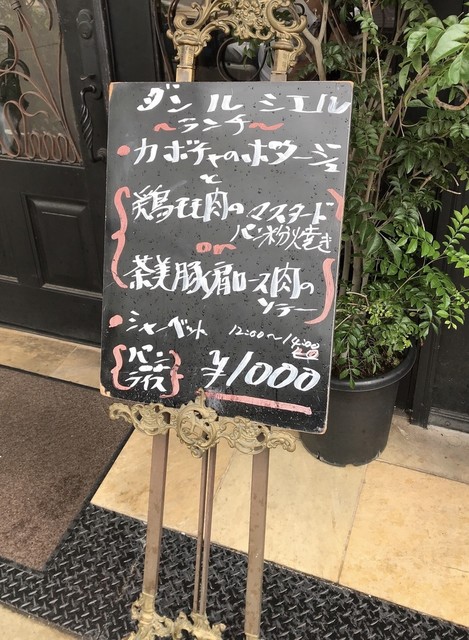 ダン ル シエル
～ランチ～
・カボチャのポタージュ
と
鶏もも肉のマスタード
パン粉焼き
or
茶美豚肩ロース肉の
ソテー
・シャーベット 12:00～14:00
LO
パン
ライス
¥1000